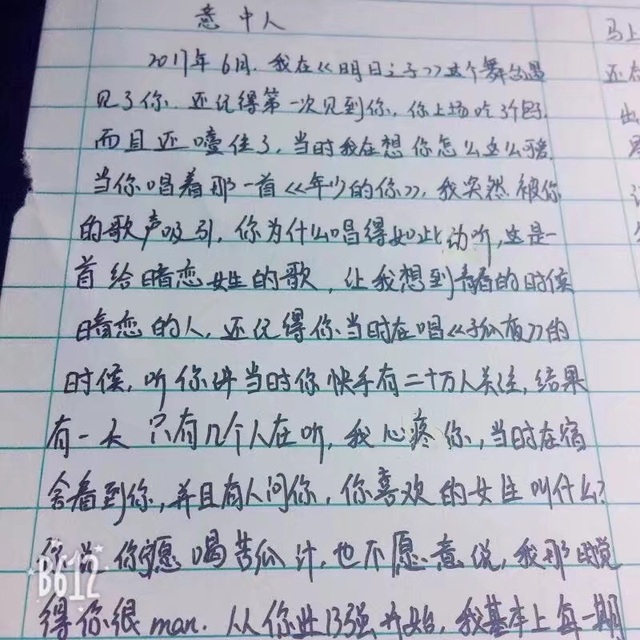 意中人
2017年6月.我在《明日之子》这个舞台遇
见了你.还记得第一次见到你,你上场吃了个
而且还噎住了,当时我在想你怎么这么可爱
当你唱着那一首《年少的你》,我突然被你
的歌声吸引,你为什么唱得如此动听,这是一
首给暗恋女生的歌,让我想到青春的时候
暗恋的人,还记得你当时在唱《孤夜》的
时候,听你讲当时你快手有二十万人关注,结果
有一天只有几个人在听,我心疼你,当时在宿
舍看到你,并且有人问你,你喜欢的女生叫什么?
你说你宁愿喝苦瓜汁,也不愿意说,我那时觉
得你很man.从你进13强开始,我基本上每一期
马上
还
B612